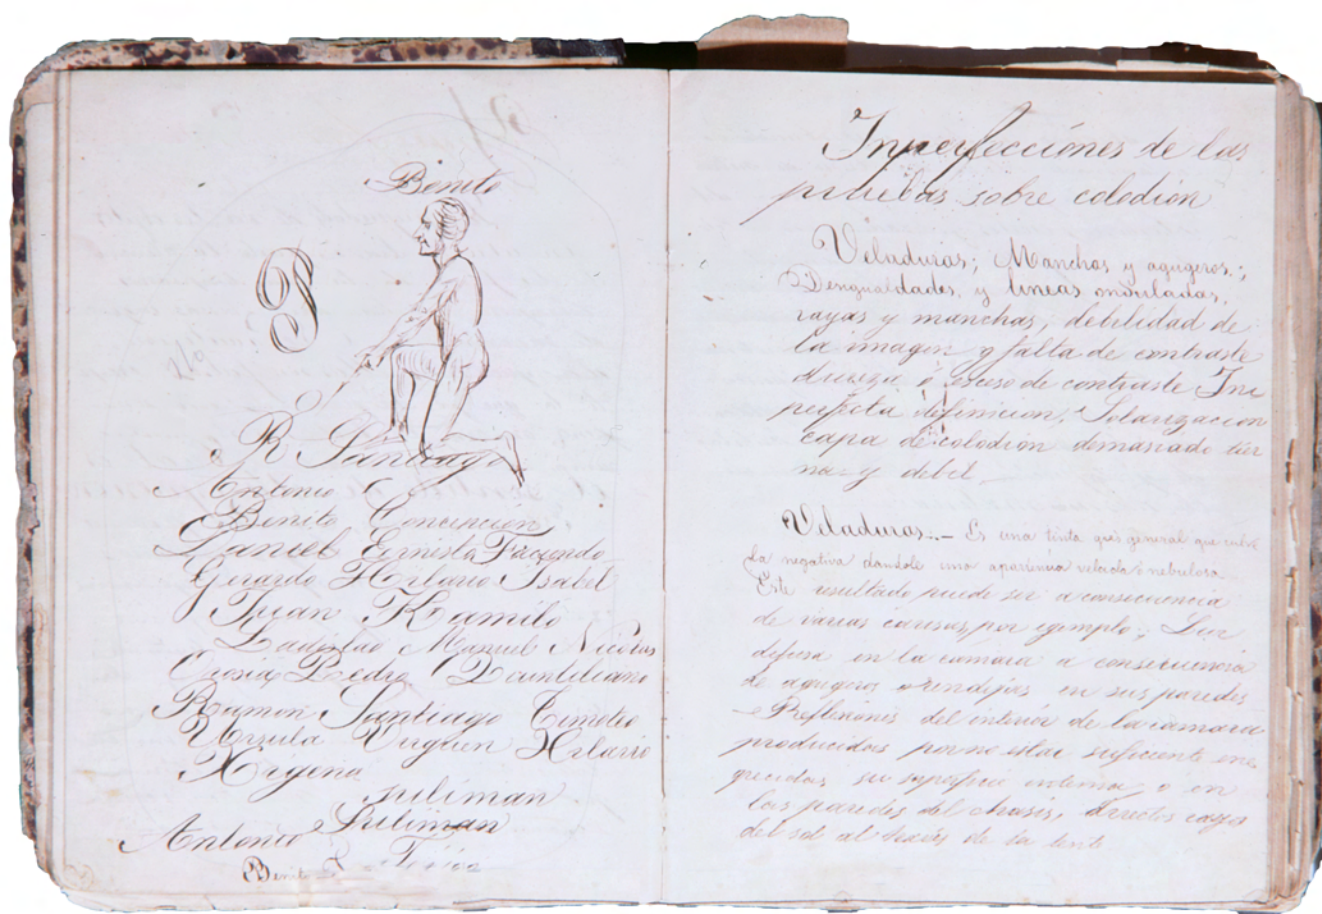 Benito
P
R Santiago
Antonio
Benito Concepción
Daniel Ernesta Facundo
Gerardo Hilario Isabel
Juan Kamilo
Ladislao Manuel Nicolas
Orosia Pedro Quintiliano
Ramon Santiago Timoteo
Ursula Virguen Hilario
Xigena
Suliman
Suliman
Antonio
Benito
Inperfecciónes de las
pruebas sobre colodion
Veladuras; Manchas y agugeros.;
Desigualdades, y lineas onduladas,
rayas y manchas, debelidad de
la imagen y falta de contraste
dureza ó esceso de contraste Im
perfecta definicion, Solarizacion
capa de colodion demasiado
na y debil.
Veladuras.- Es una tinta gris general que cubre
la negativa dandole una apariencia velada ó nebulosa
Este resultado puede ser a consecuencia
de varias causas, por egemplo; Luz
difusa en la cámara a consecuencia
de agugeros o rendijas en sus paredes
- Reflexiones del interior de la camara
producidas por no estar suficiente ene
grecidas su superficie interna, o en
las paredes del chasis, directos rayos
del sol al través de la